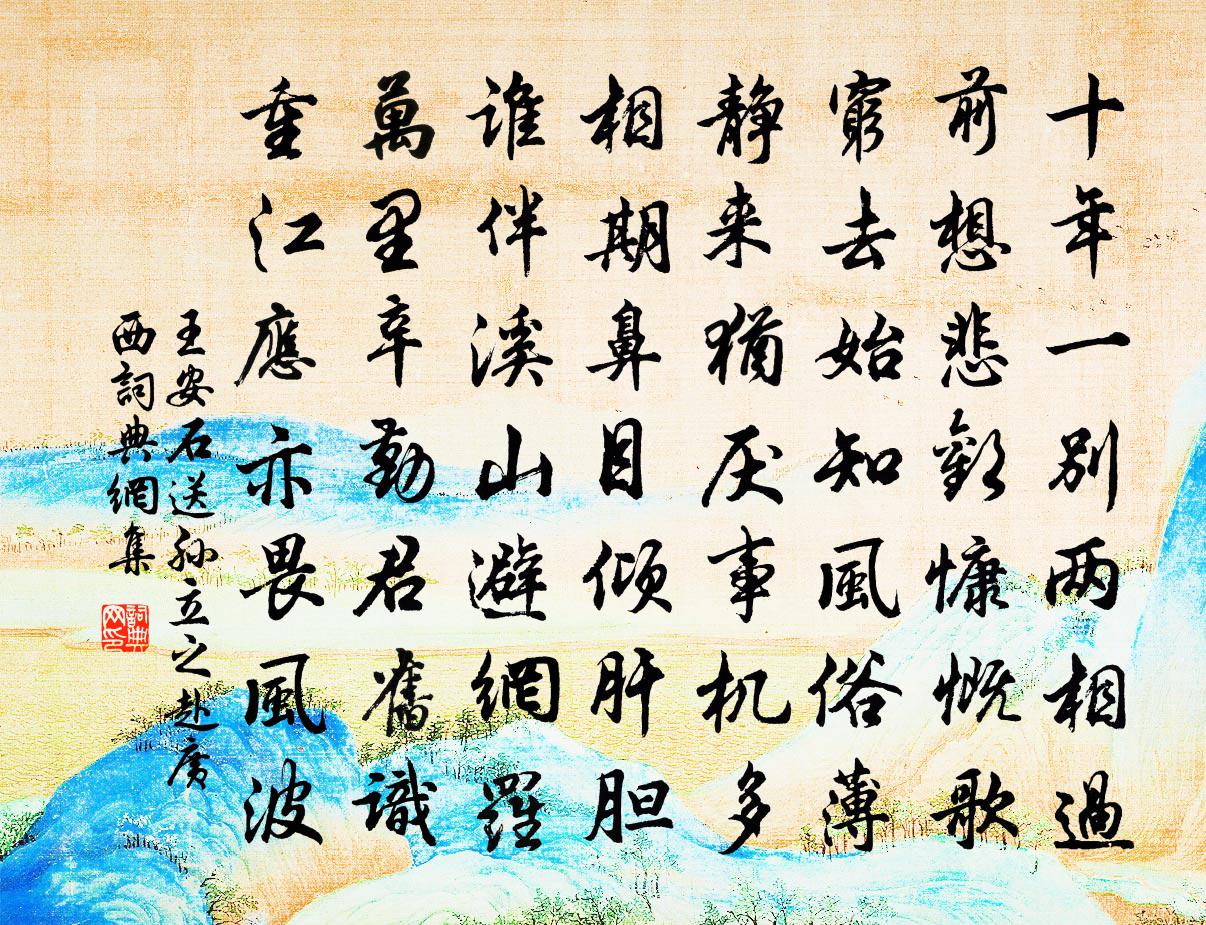 十年一别两相過
前想悲歡慷慨歌
窮去始知風俗薄
静来猶厌事机多
相期鼻目倾肝胆
谁伴溪山避網羅
萬里辛勤君舊識
重江應亦畏風波
王安石送孙立之赴廣
西詞典網集
詞典
网印